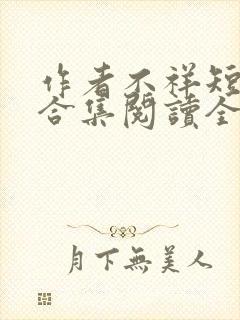 作者不祥短
合集閱讀全
月下無美人